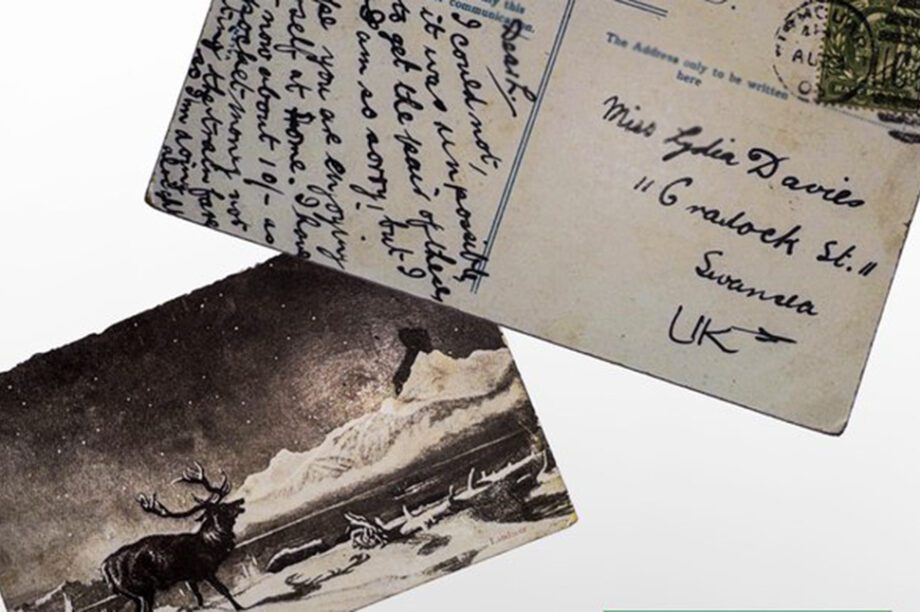 ly this
communication.
Dear L.
I could not,
it was unpossible
to get the pair of these
I am so sorry! but I
pe you are enjoying
rself at home. I have
now about 10/- as
pocket money not
ting the train fare
The Address only to be written
here
Miss Lydia Davies
"Cradock St."
Swansea
UK
AU